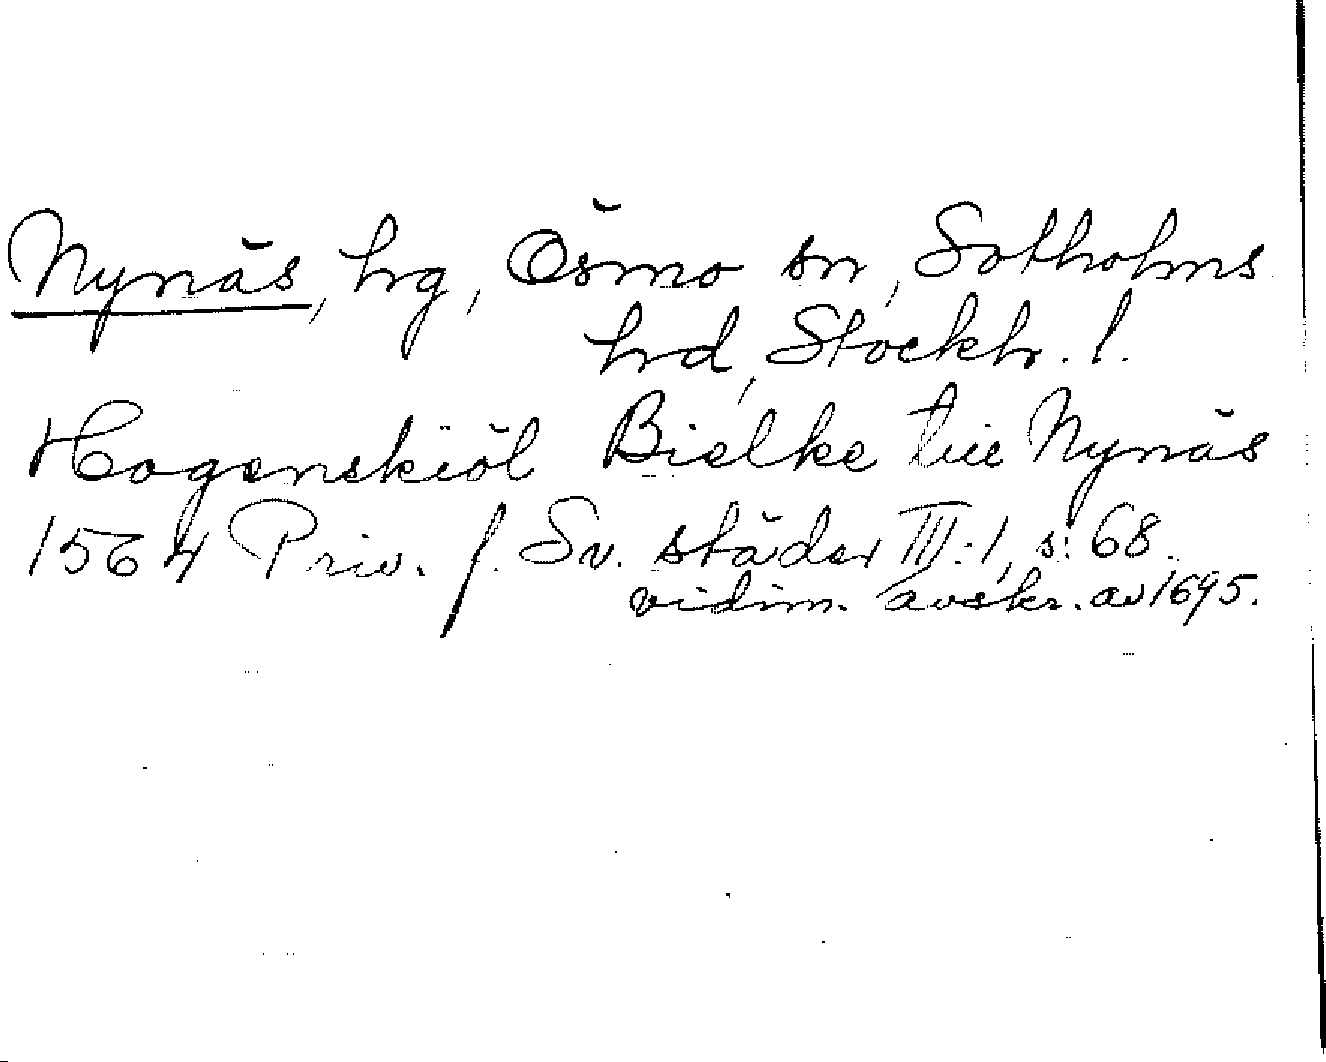 Nynäs, hrg, Ösmo sn, Sotholms
hrd, Stockh. l.
Hogenskiöl Bielke till Nynäs
1564 Priv. f. Sv. städer III:1, s. 68.
vidim. avskr. av 1695.